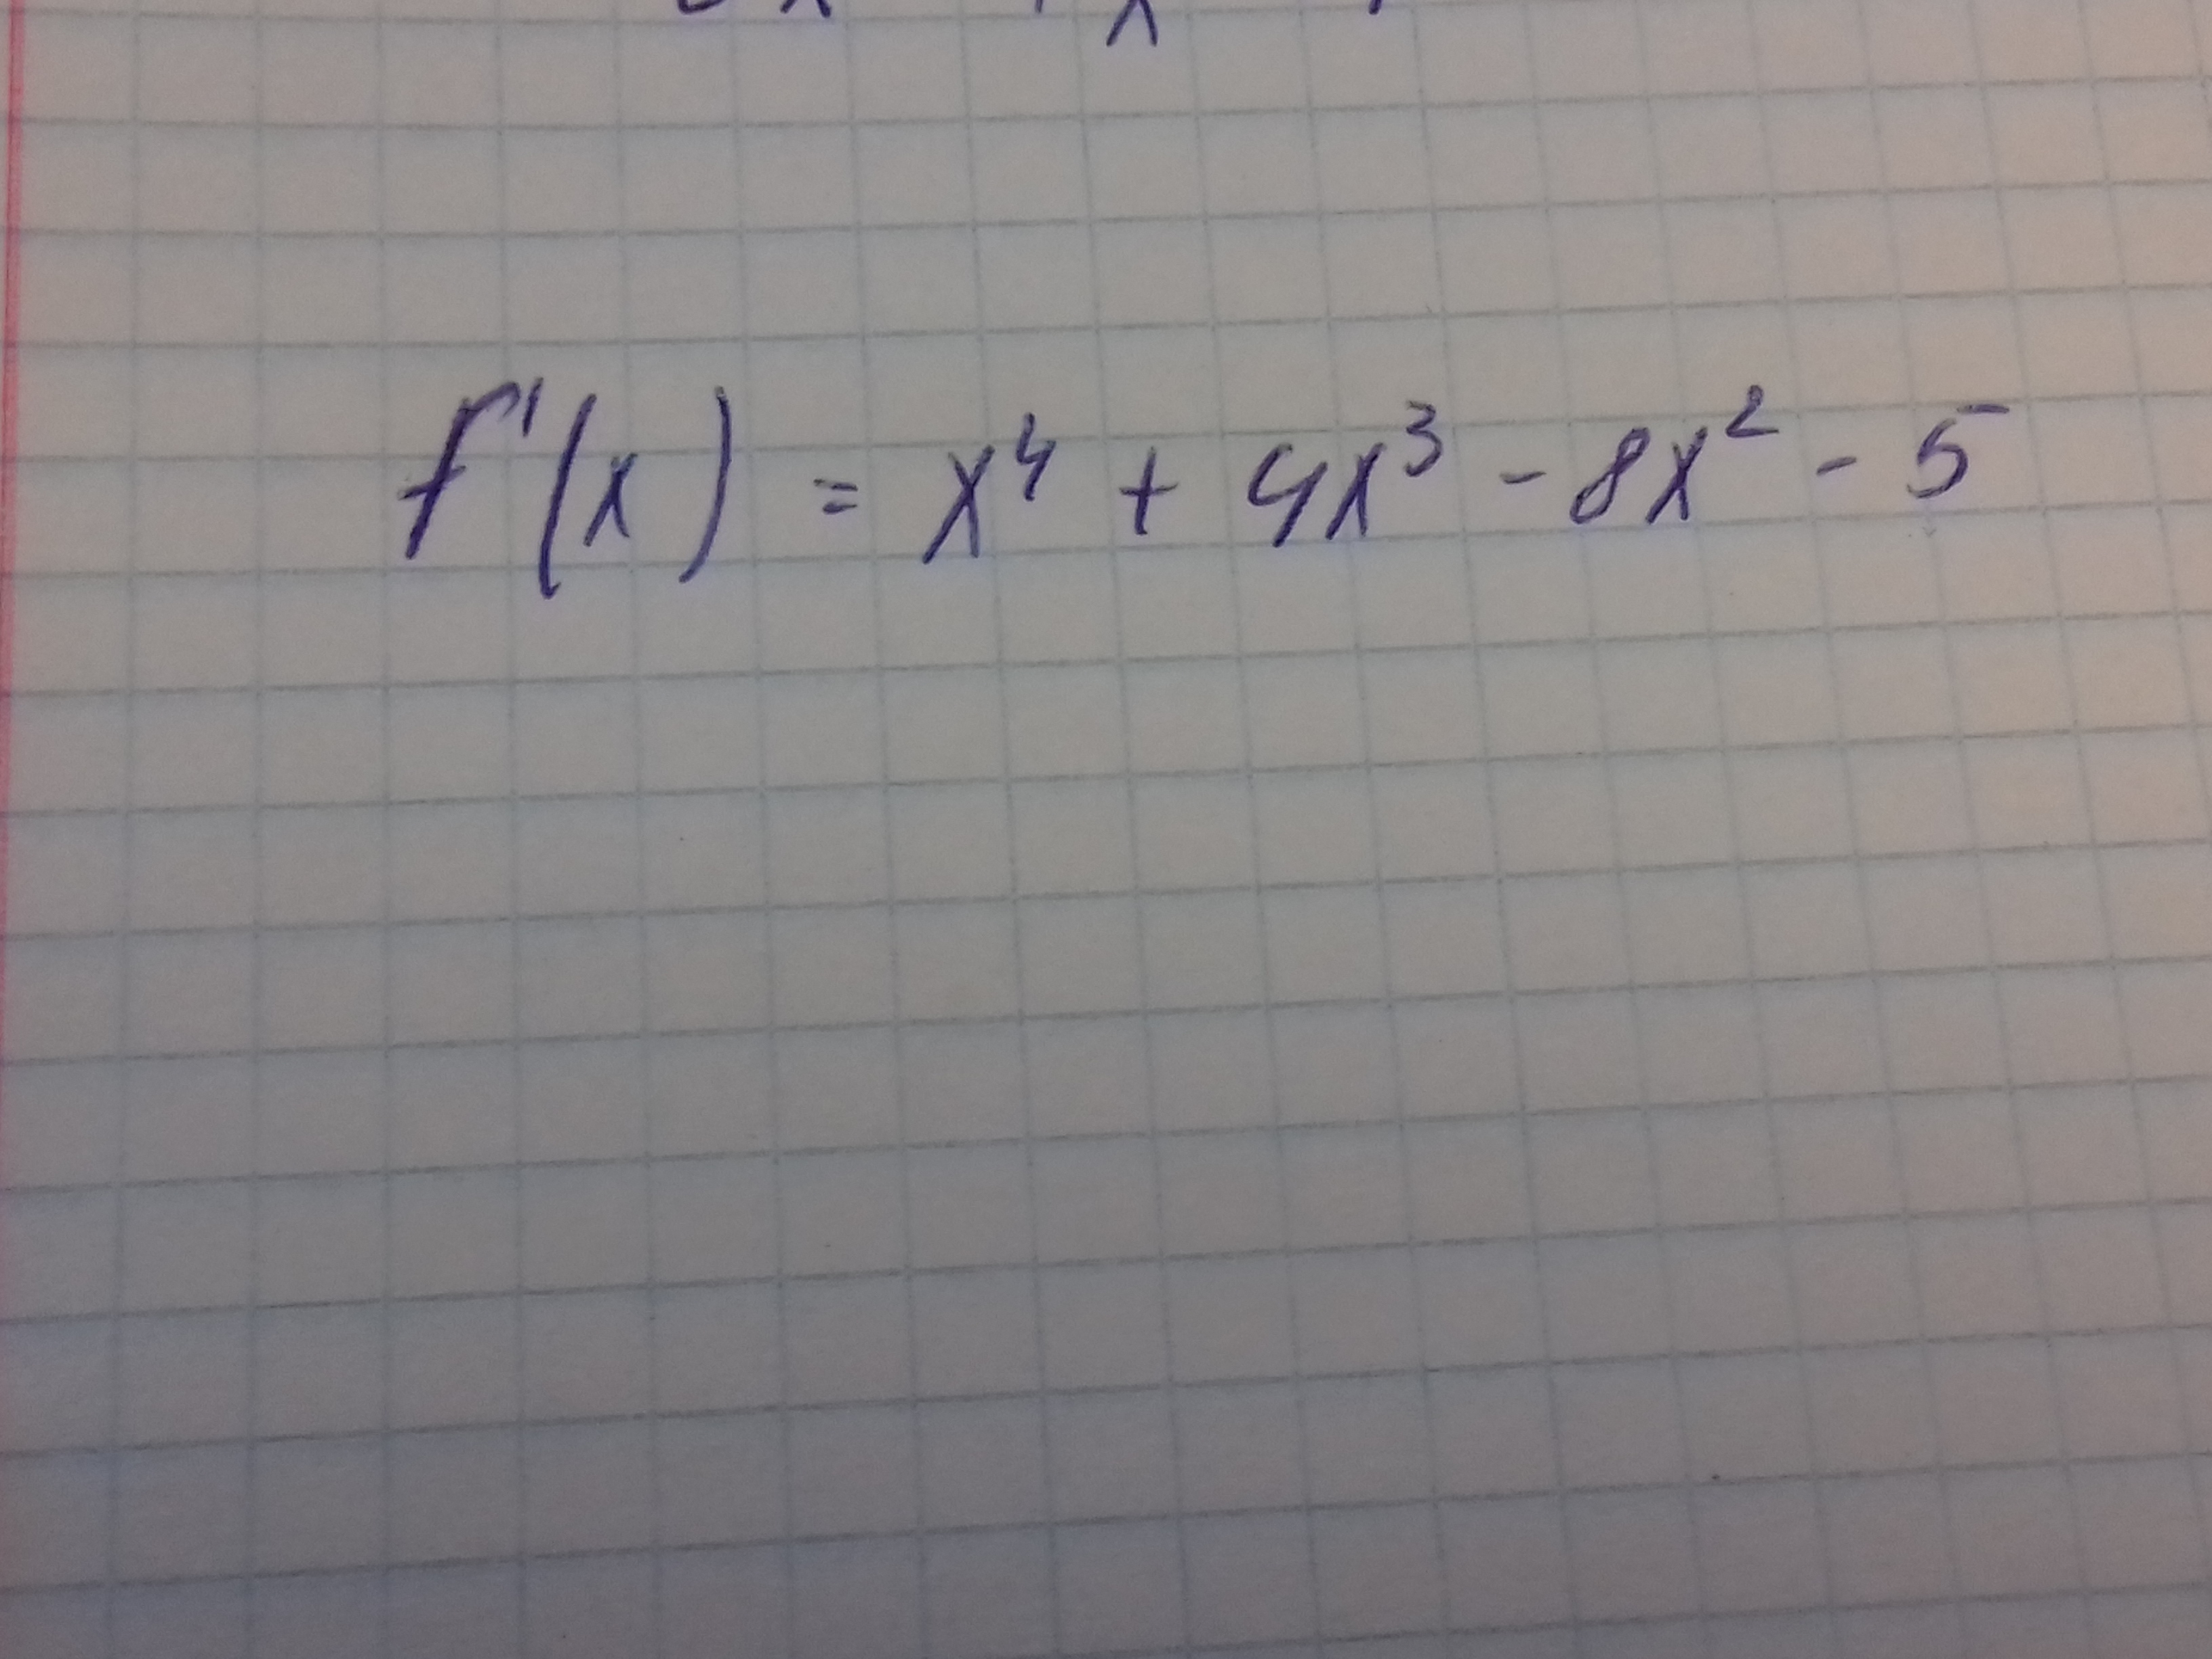 f'(x) = x⁴ + 4x³ - 8x² - 5